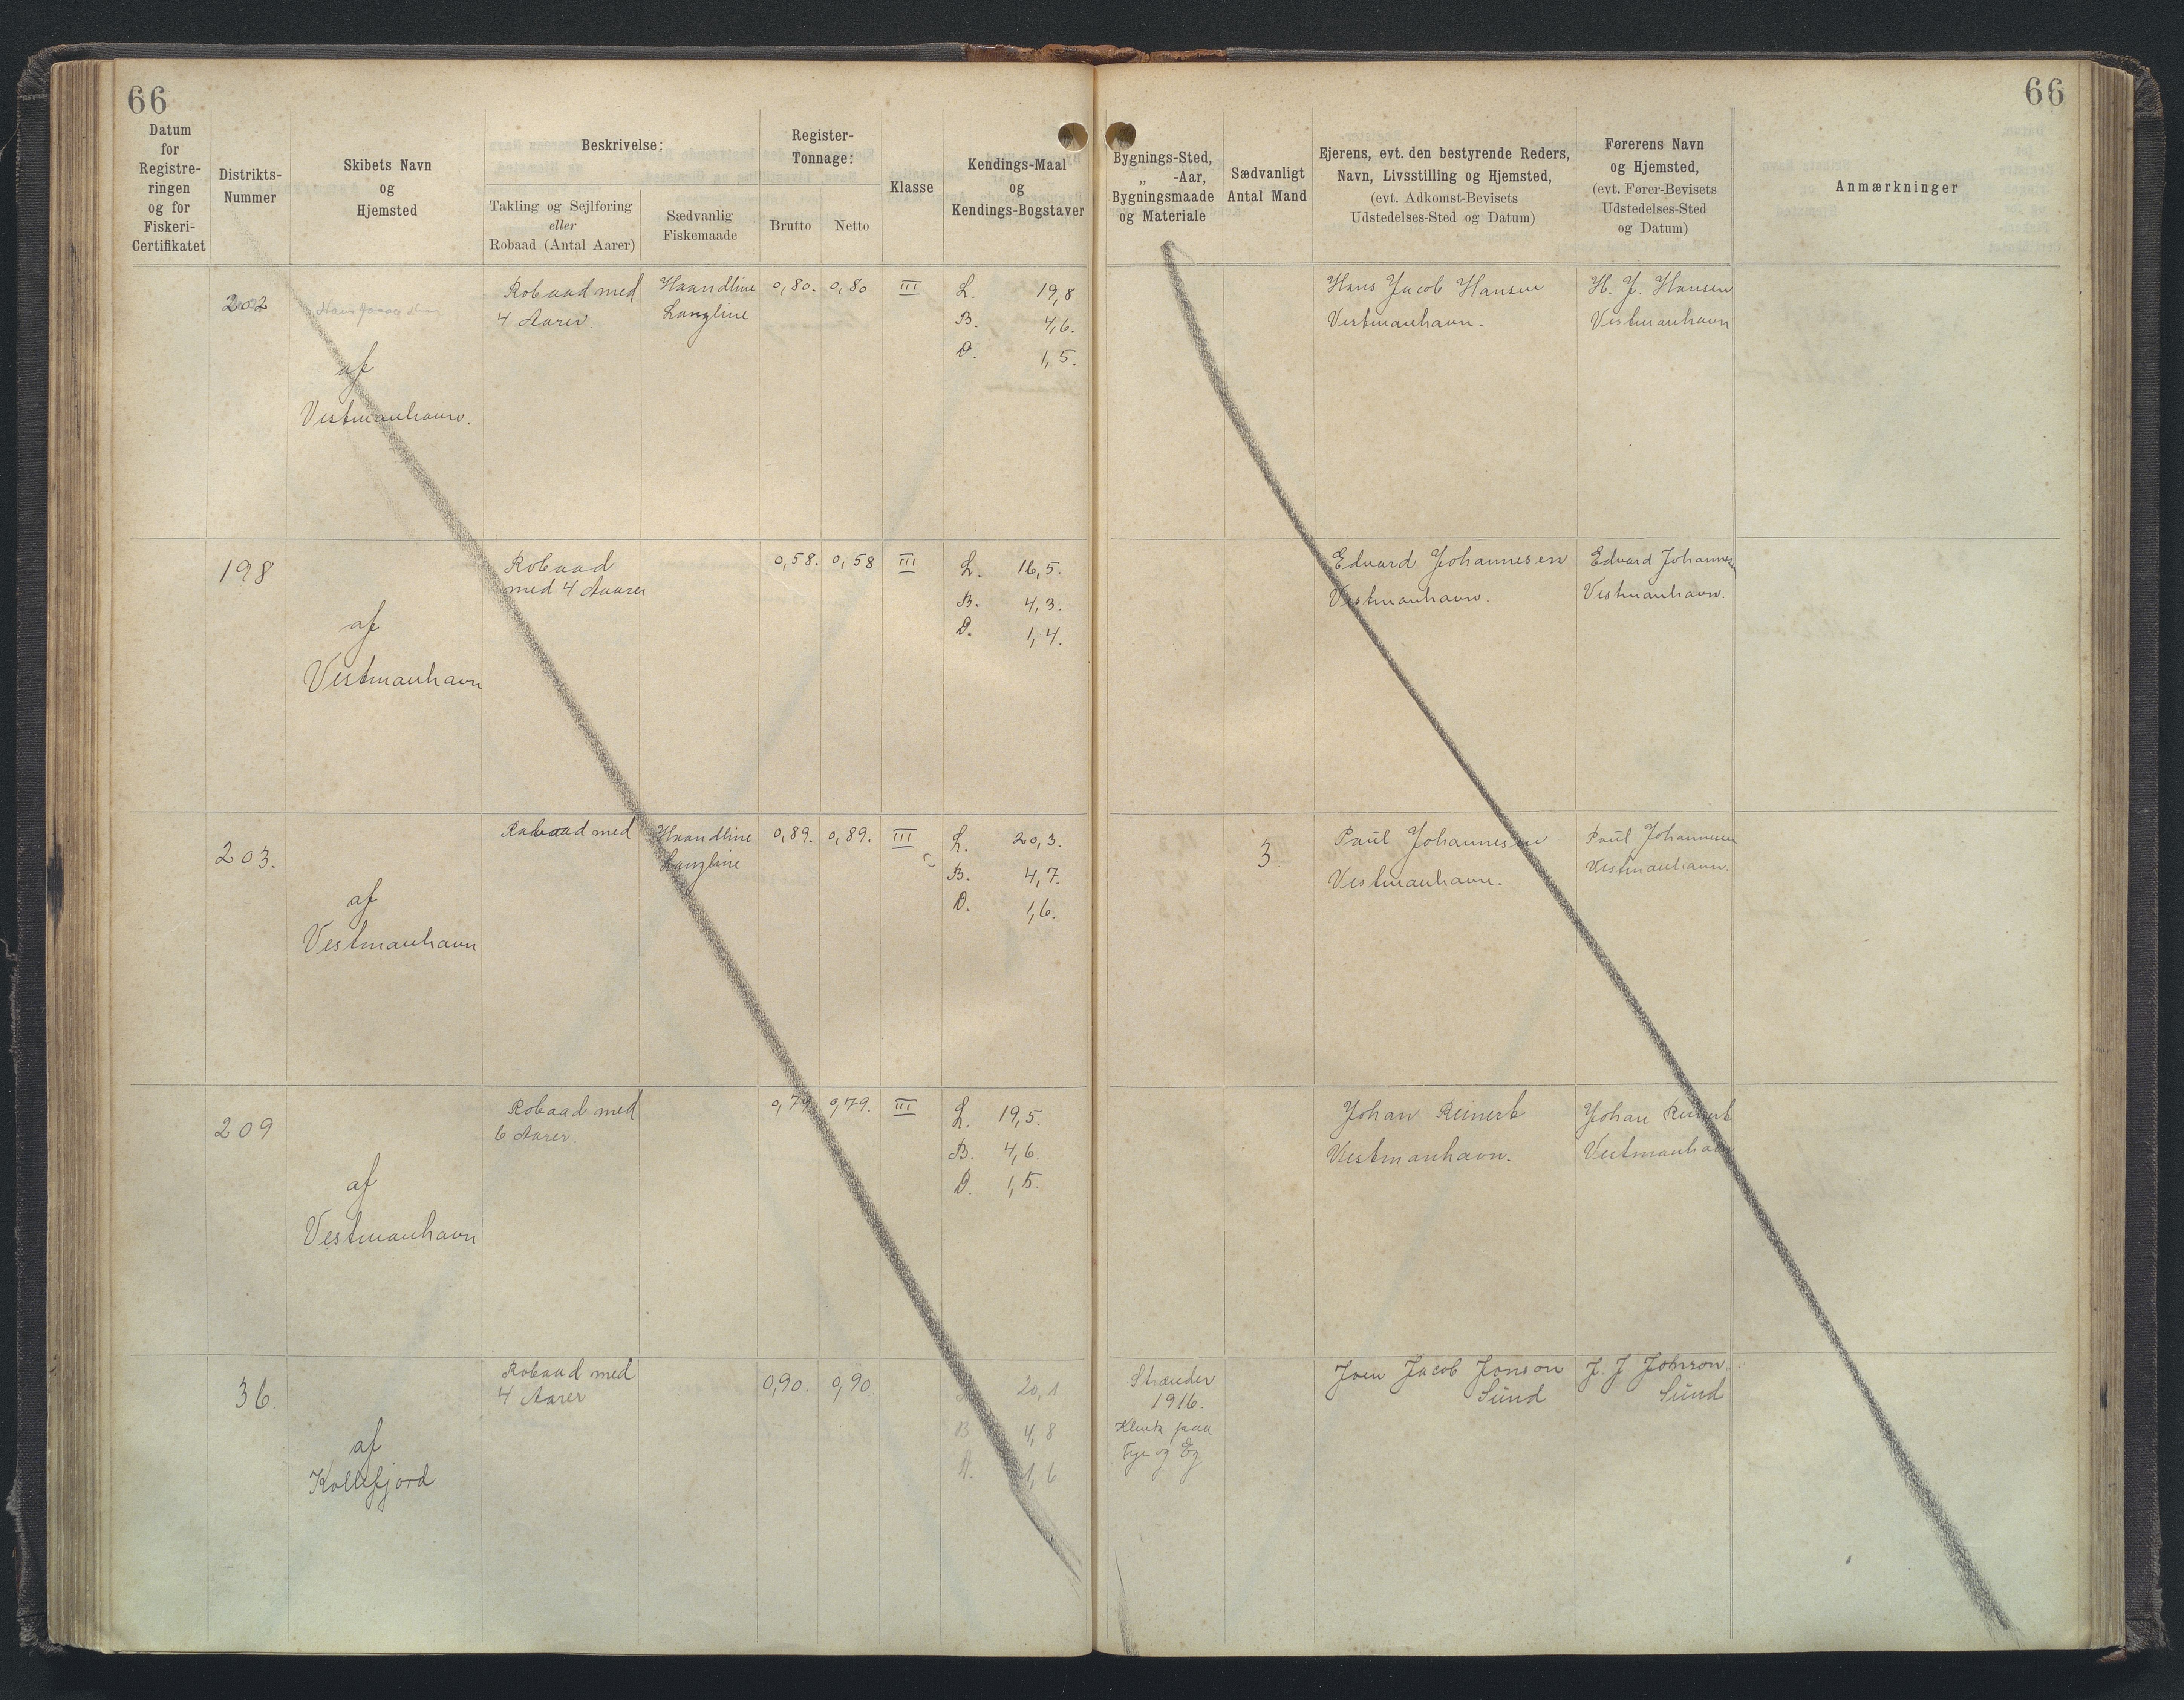 66
66
Datum
for
Registre-
ringen
og for
Fiskeri-
Certifikatet
Distrikts-
Nummer
Skibets Navn
og
Hjemsted
Beskrivelse:
Takling og Sejlføring
eller
Robaad (Antal Aarer)
Sædvanlig
Fiskemaade
Register-
Tonnage:
Brutto
Netto
Klasse
Kendings-Maal
og
Kendings-Bogstaver
Bygnings-Sted,
„ -Aar,
Bygningsmaade
og Materiale
Sædvanligt
Antal Mand
Ejerens, evt. den bestyrende Reders,
Navn, Livsstilling og Hjemsted,
(evt. Adkomst-Bevisets
Udstedelses-Sted og Datum)
Førerens Navn
og Hjemsted,
(evt. Fører-Bevisets
Udstedelses-Sted
og Datum)
Anmærkninger
202
af
Vestmanhavn.
Robaad med
4 Aarer.
Haandline
Langline
0,80. 0,80
III
L. 19,8
B. 4,6.
D. 1,5.
Hans Jacob Hansen
Vestmanhavn.
H. J. Hansen
Vestmanhavn
198
af
Vestmanhavn
Robaad
med 4 Aaarer
0,58. 0,58
III
L. 16,5.
B. 4,3.
D. 1,4.
Edvard Johannesen
Vestmanhavn.
Edvard Johannesen
Vestmanhavn.
203.
af
Vestmanhavn
Robaad med
Haandline
Langline
0,89. 0,89.
III
L. 20,3.
B. 4,7.
D. 1,6.
3.
Paul Johannesen
Vestmanhavn.
Paul Johannesen
Vestmanhavn.
209
af
Vestmanhavn
Robaad med
6 Aarer.
0,79. 0,79.
III
L. 19,5.
B. 4,6.
D. 1,5.
Johan Reinert
Vestmanhavn.
Johan Reinert
Vestmanhavn
36.
af
Kollefjord
Robaad med
4 Aarer
0,90. 0,90
20,1
B 4,8
D. 1,6
Strænder
1916.
Klink paa
Fyr og Eg
Joen Jacob Jonson
Sund
J. J Johnson
Sund